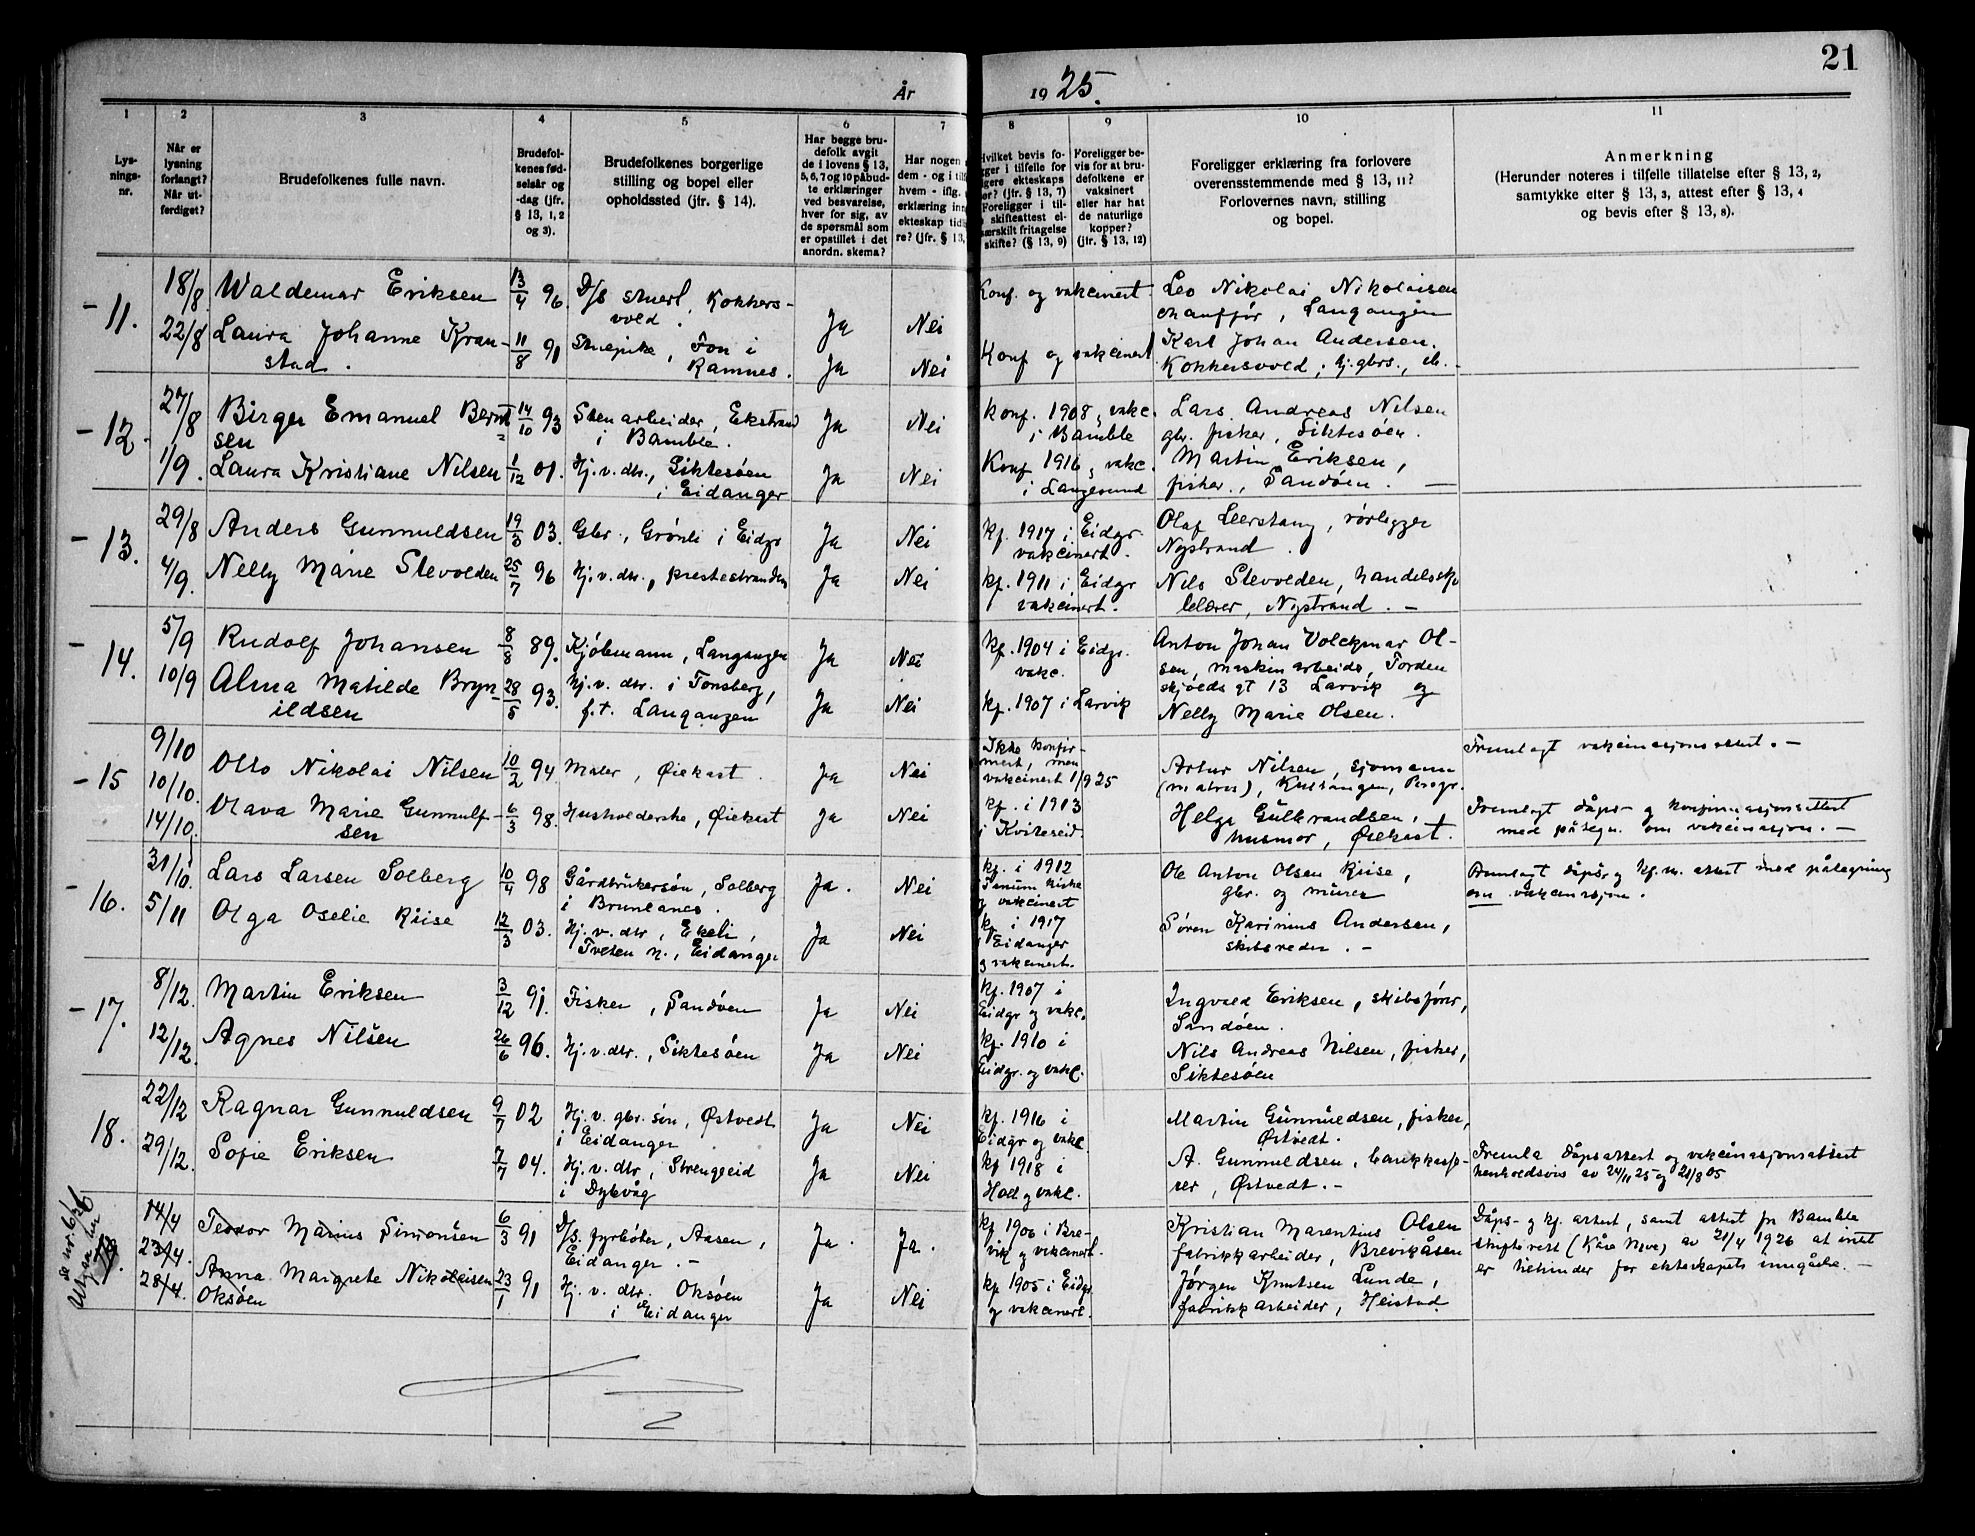 21
År 1925.
1 2 3 4 5 6 7 8 9 10 11
Lys-
nings-
nr.
Når er
lysning
forlangt?
Når ut-
ferdiget?
Brudefolkenes fulle navn.
Brudefol-
kenes fød-
selsår og
-dag (jfr.
§ 13, 1, 2
og 3).
Brudefolkenes borgerlige
stilling og bopel eller
opholdssted (jfr. § 14).
Har begge bru-
defolk avgit
de i lovens § 13,
5, 6, 7 og 10 påbud-
te erklæringer
ved besvarelse,
hver for sig, av
de spørsmål som
er opstillet i det
anordn. skema?
Har nogen
dem - og i tilf
hvem - iflg.
erklæring inn
ekteskap tidl
re? (jfr. § 13,
Hvilket bevis fo-
gger i tilfelle for
igere ekteskaps
er? (jfr. § 13, 7)
Foreligger i til-
skifteattest el-
særskilt fritagelse
skifte? (§ 13, 9)
Foreligger be-
vis for at bru-
defolkene er
vaksinert
eller har hat
de naturlige
kopper?
(jfr. § 13, 12)
Foreligger erklæring fra forlovere
overensstemmende med § 13, 11?
Forlovernes navn, stilling
og bopel.
Anmerkning
(Herunder noteres i tilfelle tillatelse efter § 13, 2,
samtykke efter § 13, 3, attest efter § 13, 4
og bevis efter § 13, 8).
- 11. 18/8 Waldemar Eriksen 13/4 96. D/s stuert, Kokkers-
vold. Ja Nei Konf. og vakcinert. Leo Nikolai Nikolaisen
chauffør, Langangen
22/8 Laura Johanne Kran-
stad. 11/8 91 Stuepike, Fon i
Ramnes. Ja Nei Konf og vakcinert Karl Johan Andersen.
Kokkersvold, hj. gbrs.
- 12. 27/8 Birger Emanuel Bernt-
sen 14/10 93 Stenarbeider, Ekstrand
i Bamble. Ja Nei Konf. 1908, vakc.
i Bamble Lars Andreas Nilsen
gbr. fisker, Siktesøen.
1/9. Laura Kristiane Nilsen 1/12 01. Hj. v. dtr., Siktesøen
i Eidanger Ja Nei Konf 1916, vakc.
i Langesund Martin Eriksen,
fisker., Sandøen. —
- 13. 29/8 Anders Gunnuldsen 19/3 03. Gbr., Grønli i Eidgr Ja Nei kf. 1917 i Eidgr
vakcinert. Olaf Leerstang, rørlegger
Nystrand.
4/9. Nelly Marie Stevolden 25/7 96 Hj. v. dtr., Prestestranden Ja Nei kf. 1911 i Eidgr
vakcinert. Nils Stevolden, handelssk
lelærer, Nystrand. —
- 14. 5/9 Rudolf Johansen 8/8 89. Kjøbmann, Langangen Ja Nei kf. 1904 i Eidgr.
vakc. Anton Johan Volckmar Ol-
sen, maskinarbeide, Torden
skjolds gt 13 Larvik og
10/9 Alma Matilde Bryn-
ildsen 28/5 93. Hj. v. dtr. i Tønsberg,
f. t. Langangen Ja Nei kf. 1907 i Larvik Nelly Marie Olsen.
- 15 9/10 10/10. Otto Nikolai Nilsen 10/2 94. Maler, Øiekast. Ja Nei Ikke konfir-
mert, men
vakcinert 1/9 25 Artur Nilsen, sjømann
(matros), Kultangen, Porsgr. Fremlagt vakcinasjonsattest. —
14/10. Olava Marie Gunnulf-
sen 6/3 98. Husholderske, Øiekast Ja Nei kf. i 1913
i Kviteseid. Helga Gulbrandsen,
husmor, Øiekast. Fremlagt dåps- og konfirmasjonsattest
med påtegn. om vakcinasjon. —
- 16. 31/10. Lars Larsen Solberg 10/4 98 Gårdbrukersøn, Solberg
i Brunlanes. Ja. Nei kf. i 1912
Tanum kirke
og vakcinert Ole Anton Olsen Riise,
gbr. og murer Fremlagt dåps- og kf.m. attest med påtegning
om vakcinasjon.
5/11 Olga Oselie Riise 12/3 03. Hj. v. dtr, Ekeli,
Tveten n., Eidanger Ja Nei kf. i 1917
i Eidanger
og vakcinert. Søren Karinius Andersen,
skibsreder. —
- 17. 8/12. Martin Eriksen 3/12 91. Fisker, Sandøen Ja Nei kf. 1907 i
Eidgr og vakc. Ingvald Eriksen, skibsfører,
Sandøen.
12/12. Agnes Nilsen 26/6 96. Hj. v. dtr., Siktesøen Ja Nei kf. 1910 i
Eidgr. og vakc. Nils Andreas Nilsen, fisker,
Siktesøen
18. 22/12 Ragnar Gunnuldsen 9/7 02 Hj. v. gbr. søn, Østvedt
i Eidanger Ja Nei kf. 1916 i
Eidgr og vakc Martin Gunnuldsen, fisker,
Østvedt.
29/12. Sofie Eriksen 7/7 04. Hj. v. dtr, Strengereid
i Dybvåg Ja Nei kf 1918 i
Holt og vakc. A. Gunnuldsen, bankkasse-
rer, Østvedt. — Fremla dåpsattest og vakcinasjonsattest
henholdsvis av 24/11 25 og 21/8 05
Utgår her
se nr. 6/26
14/4 23/4. Teodor Marius Simonsen 6/3 91 D/s. fyrbøter, Aasen,
Eidanger. — Ja. Ja. kf 1906 i Bre-
vik og vakcinert. Kristian Marentius Olsen
fabrikkarbeider, Brevikåsen Dåps- og kf. attest, samt attest fra Bamble
skifterett (Kåre Neve) av 21/4 1926 at intet
er til hinder for ekteskapets inngåelse. —
28/4. Anna Margrete Nikolaisen
Oksøen 23/1 91 Hj. v. dtr. Oksøen
i Eidanger Ja Nei kf 1905 i Eidgr
og vakcinert. Jørgen Knutsen Lunde,
fabrikkarbeider, Heistad